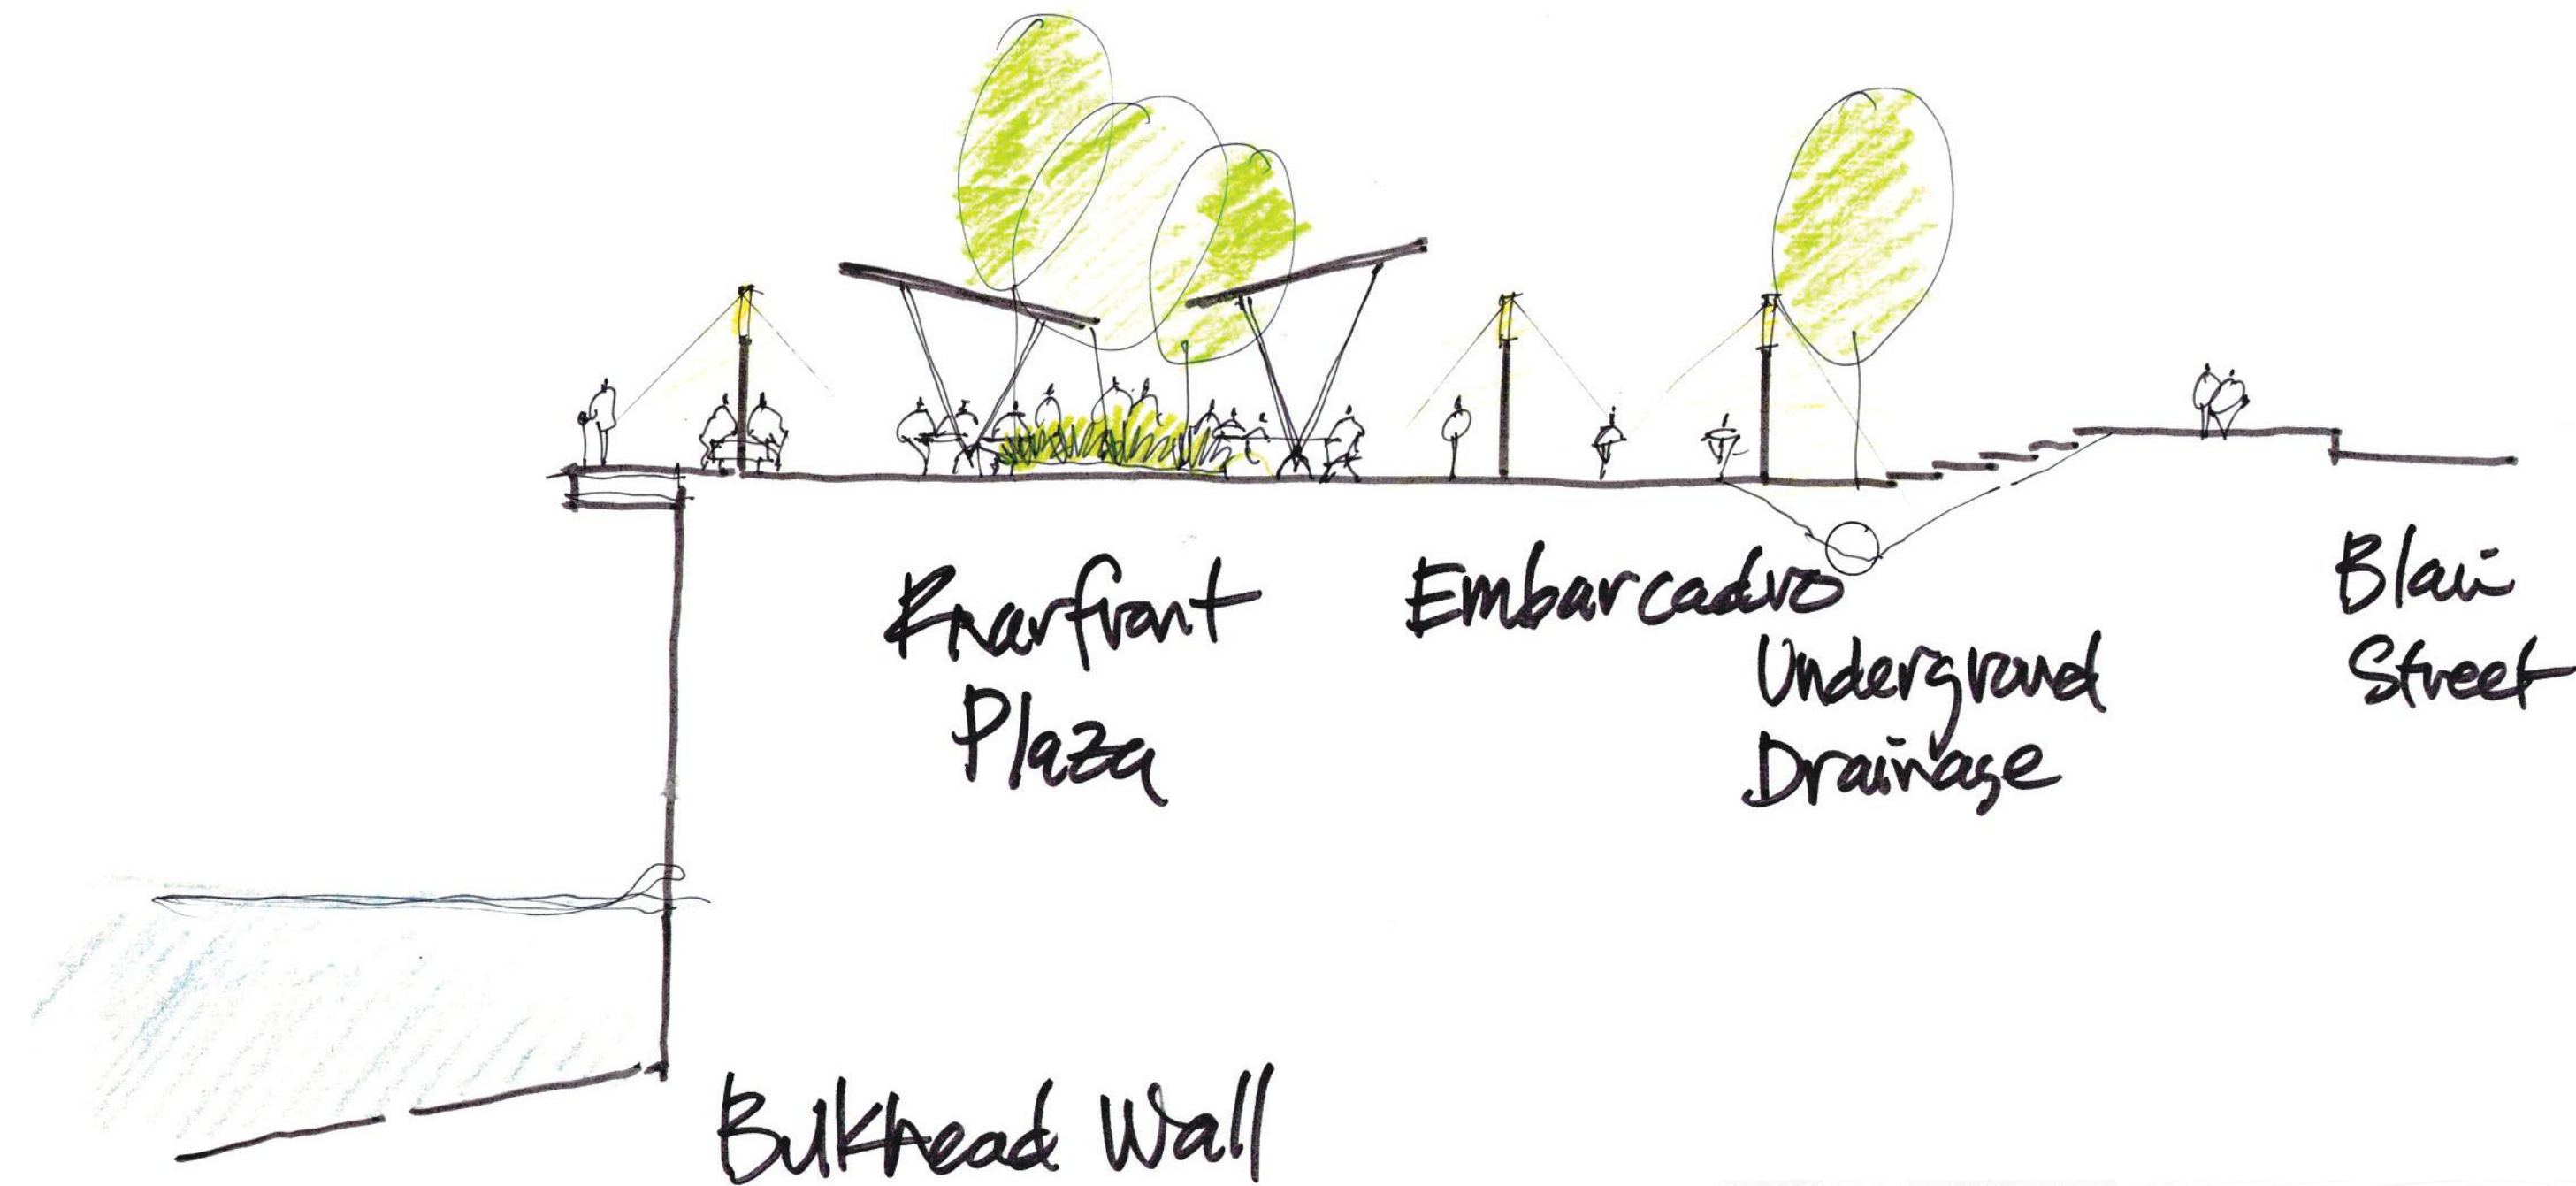 Riverfront
Plaza
Embarcadro
Underground
Drainage
Blair
Street
Bulkhead Wall